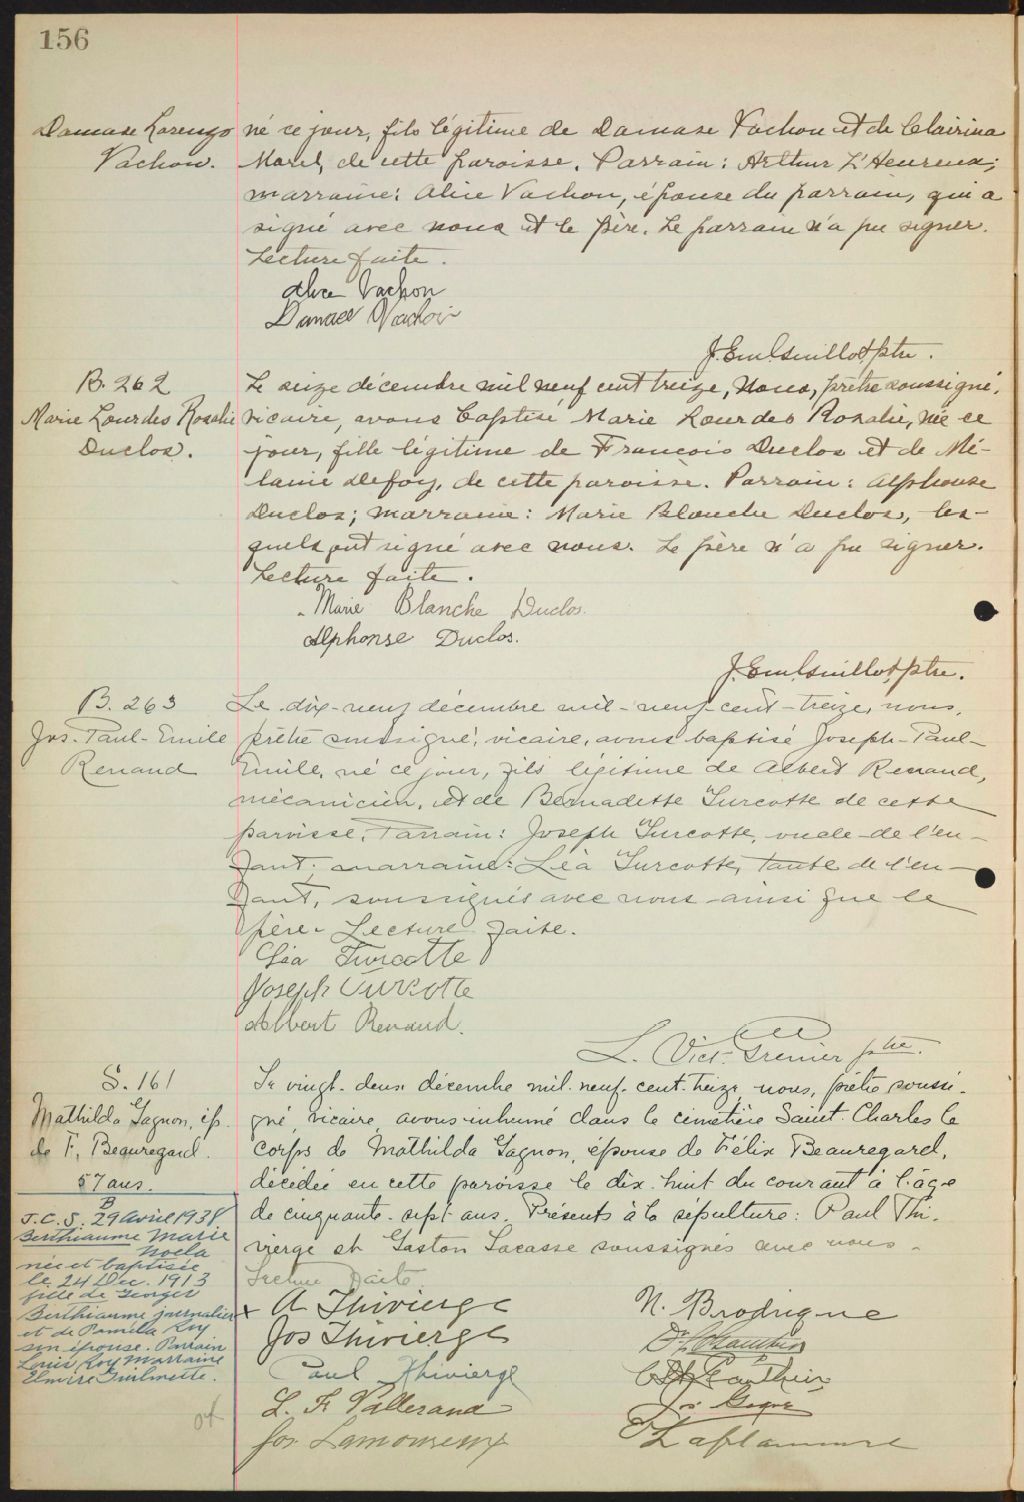 156
Damase Lorenzo
Vachon.
né ce jour, fils légitime de Damase Vachon et de Clairina
Morel, de cette paroisse. Parrain: Arthur L'Heureux;
marraine: Alice Vachon, épouse du parrain, qui a
signé avec nous et le père. Le parrain n'a pu signer.
Lecture faite.
Alice Vachon
Damase Vachon
J. Em. Guillot, ptre.
B. 262
Marie Lourdes Rosalie
Duclos.
Le seize décembre mil neuf cent treize, Nous, prêtre soussigné,
vicaire, avons baptisé Marie Lourdes Rosalie, née ce
jour, fille légitime de Francois Duclos et de Mé-
lanie Defoy, de cette paroisse. Parrain: Alphonse
Duclos; marraine: Marie Blanche Duclos, les-
quels ont signé avec nous. Le père n'a pu signer.
Lecture faite.
Marie Blanche Duclos.
Alphonse Duclos.
J. Em. Guillot, ptre.
B. 263
Jos. Paul-Emile
Renaud
Le dix-neuf décembre mil-neuf-cent-treize, nous,
prêtre soussigné, vicaire, avons baptisé Joseph-Paul-
Emile, né ce jour, fils légitime de Albert Renaud,
mécanicien, et de Bernadette Turcotte de cette
paroisse. Parrain: Joseph Turcotte, oncle de l'en-
fant; marraine: Léa Turcotte, tante de l'en-
fant, soussignés avec nous ainsi que le
père. Lecture faite.
Léa Turcotte
Joseph Turcotte
Albert Renaud.
L. Vict. Grenier ptre.
S. 161
Mathilda Gagnon, ép.
de F. Beauregard.
57 ans.
Le vingt-deux décembre mil-neuf-cent-treize, nous, prêtre soussi-
gné, vicaire, avons inhumé dans le cimetière Saint-Charles le
corps de Mathilda Gagnon, épouse de Félix Beauregard,
décédée en cette paroisse le dix-huit du courant à l'âge
de cinquante-sept ans. Présents à la sépulture: Paul Thi-
vierge et Gaston Lacasse soussignés avec nous.
Lecture faite.
B
J.C.S. 29 Avril 1938
Berthiaume Marie
Noela
née et baptisée
le 24 Dec. 1913
fille de Georges
Berthiaume journalier
et de Paméla Roy
son épouse. Parrain
Louis Roy Marraine
Elmire Guilmette.
x A Thivierge
Jos Thivierge
Paul Thivierge
L. F. Vallerand
Jos. Lamoureux
N. Brodrigue
Gauthier
Laflamme